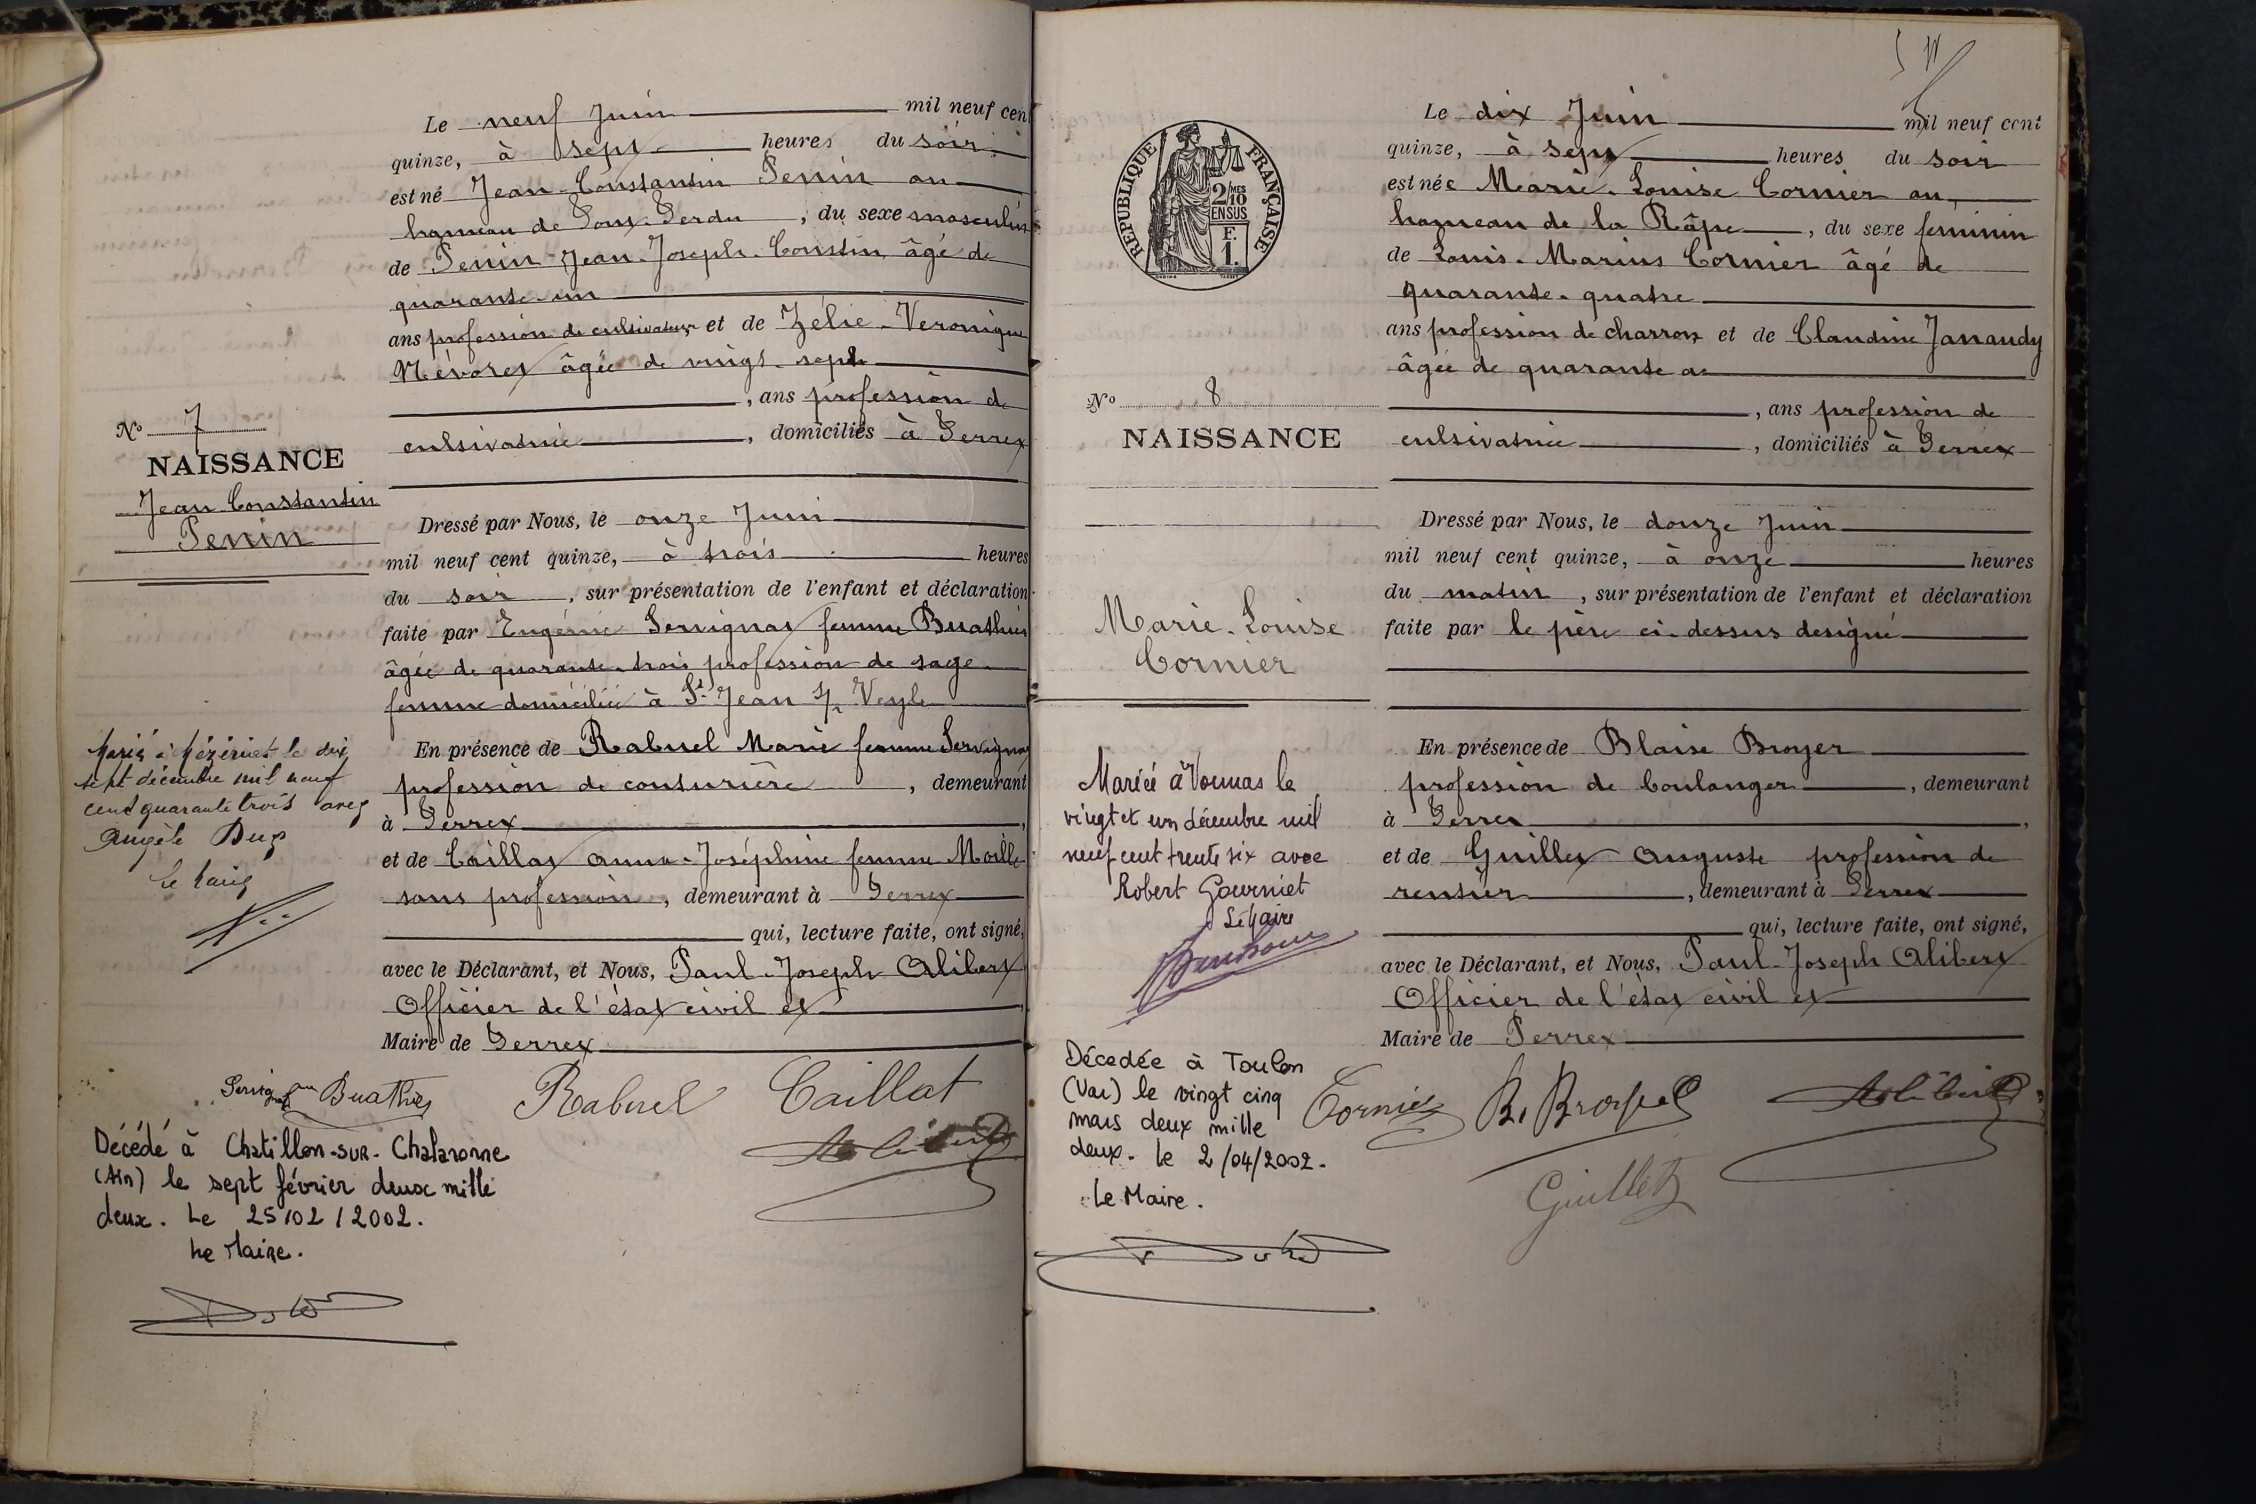 Le neuf Juin mil neuf cen
quinze, à sept heures du soir
est né Jean-Constantin Penin au
hameau de Pont-Perdu, du sexe masculin
de Penin Jean-Joseph-Constin, âgé de
quarante-un
ans profession de cultivateur et de Zélie-Veronique
âgée de vingt-sept
, ans profession de
cultivatrice, domiciliés à Perrex
No 7
NAISSANCE
Jean Constantin
Penin
Dressé par Nous, le onze Juin
mil neuf cent quinze, à trois heures
du soir, sur présentation de l'enfant et déclaration
faite par Eugénie Servignat femme Buathier
âgée de quarante-trois profession de sage-
femme domiciliée à St Jean s/ Veyle
En présence de Rabuel Marie femme Servignat
profession de couturière, demeurant
à Perrex,
et de Caillat Anna-Joséphine femme
sans profession, demeurant à Perrex
qui, lecture faite, ont signé,
avec le Déclarant, et Nous, Paul-Joseph Alibert
Officier de l'état civil et
Maire de Perrex
Servignat Buathier Rabuel Caillat
Marié à Mézériat le dix
sept décembre mil neuf
cent quarante trois avec
Angèle
Le Maire
Décédé à Chatillon-sur-Chalaronne
(Ain) le sept février deux mille
deux. Le 25/02/2002.
Le Maire.
RÉPUBLIQUE FRANÇAISE
2/10 MES
EN SUS
F.
1.
Le dix Juin mil neuf cent
quinze, à sept heures du soir
est née Marie-Louise Cornier au
hameau de la Râpe, du sexe feminin
de Louis-Marius Cornier âgé de
quarante-quatre
ans profession de charron et de Claudine Janaudy
âgée de quarante
, ans profession de
cultivatrice, domiciliés à Perrex
No 8
NAISSANCE
Marie-Louise
Cornier
Dressé par Nous, le douze Juin
mil neuf cent quinze, à onze heures
du matin, sur présentation de l'enfant et déclaration
faite par le père ci-dessus designé
En présence de Blaise Broyer
profession de boulanger, demeurant
à Perrex,
et de Guillet Auguste profession de
rentier, demeurant à Perrex
qui, lecture faite, ont signé,
avec le Déclarant, et Nous, Paul-Joseph Alibert
Officier de l'état civil et
Maire de Perrex
Cornier B. Broyer
Guillet
Mariée à Vonnas le
vingt et un décembre mil
neuf cent trente six avec
Robert Gourniet
Le Maire
Décedée à Toulon
(Var) le vingt cinq
mars deux mille
deux. Le 2/04/2002.
Le Maire.